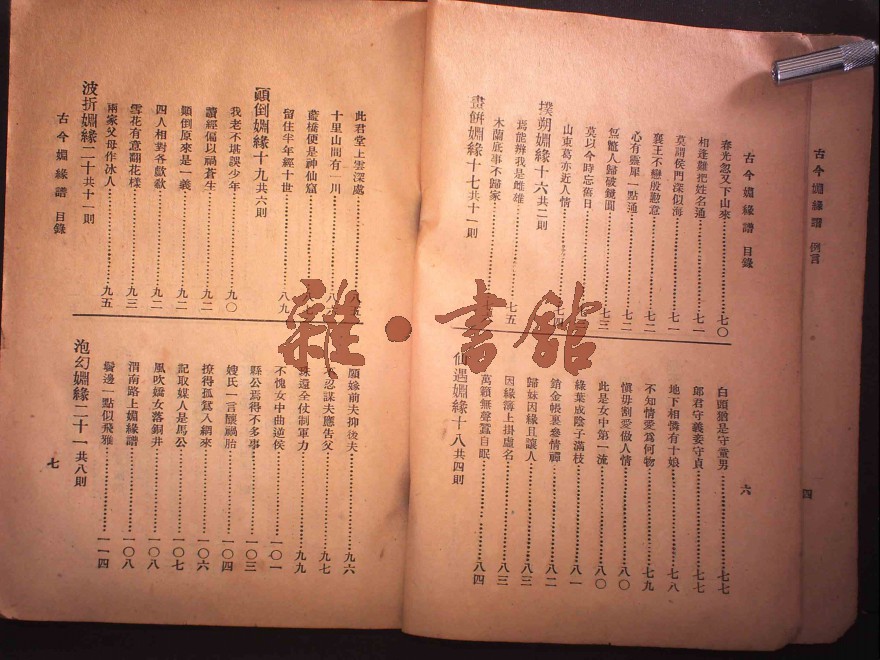 古今婣緣譜 例言
四
古今婣緣譜 目錄
六
春光忽又下山來……七〇
相逢難把姓名通……七一
莫謂侯門深似海……七一
襄王不戀殷勤意……七二
心有靈犀一點通……七二
無鹽人歸破鏡圓……七三
莫以今時忘舊日
山東葛亦近人情……七四
撲朔婣緣十六共二則
焉能辨我是雌雄……七五
木蘭底事不歸家
畫餅婣緣十七共十一則
白頭猶是守童男……七七
郎君守義妾守貞……七七
地下相憐有十娘……七八
不知情愛爲何物……七九
愼毋割愛做人情……八〇
此是女中第一流……八〇
綠葉成陰子滿枝……八一
銷金帳裏參情禪……八二
歸妹因緣且讓人……八三
因緣簿上掛虛名……八三
萬籟無聲蠶自眠……八四
仙遇婣緣十八共四則
此君堂上雲深處……八五
十里山間有一川
藍橋便是神仙窟
留住半年經十世……八九
顚倒婣緣十九共六則
我老不堪誤少年……九〇
讀經偏以禍蒼生……九一
顚倒原來是一義……九一
四人相對各歔欷……九二
雪花有意翻花樣……九三
兩家父母作冰人……九五
波折婣緣二十共十一則
古今婣緣譜 目錄
願嫁前夫抑後夫……九六
不忍謀夫應告父……九七
珠還全仗制軍力……九九
不愧女中曲逆侯……一〇一
縣公焉得不多事……一〇三
嫂氏一言釀禍胎……一〇四
撩得孤鴛入網來……一〇六
記取媒人是馬公……一〇七
風吹嬌女落銅井……一〇八
渭南路上婣緣譜……一〇八
鬢邊一點似飛鴉……一一四
泡幻婣緣二十一共八則
七
雜·書館